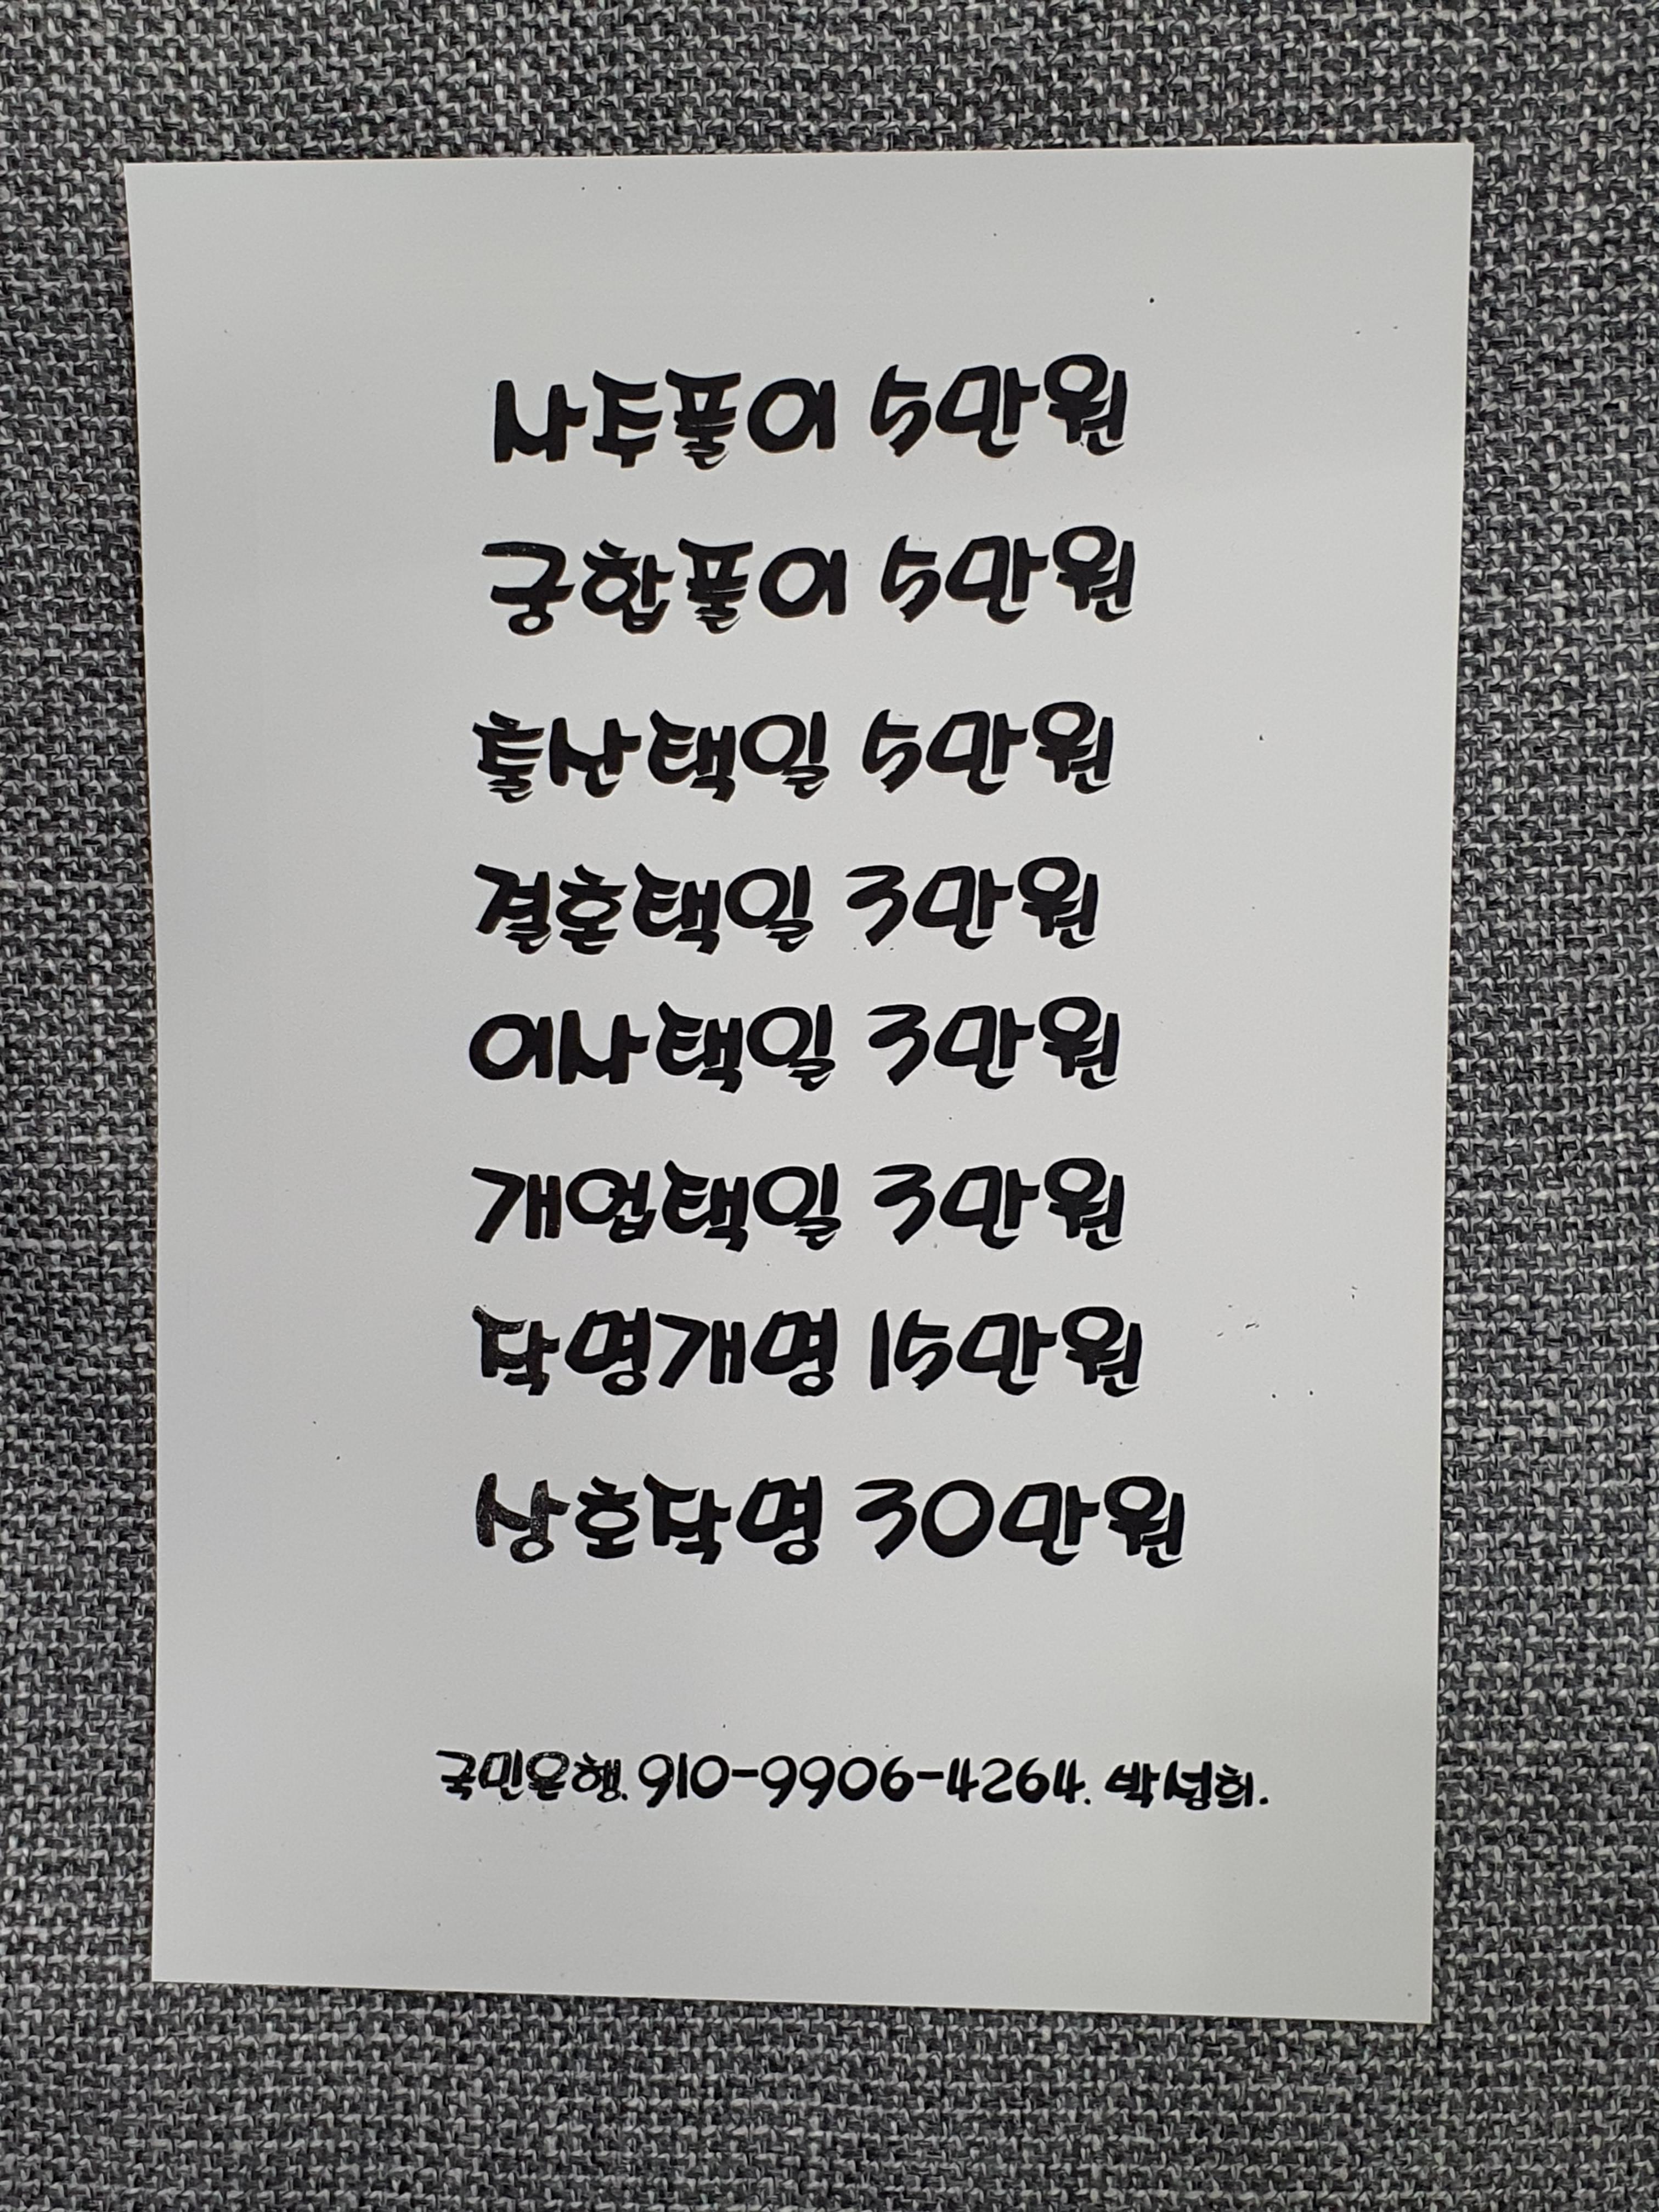 사주풀이 5만원
궁합풀이 5만원
출산택일 5만원
결혼택일 3만원
이사택일 3만원
개업택일 3만원
작명개명 15만원
상호작명 30만원
국민은행. 910-9906-4264. 박성희.